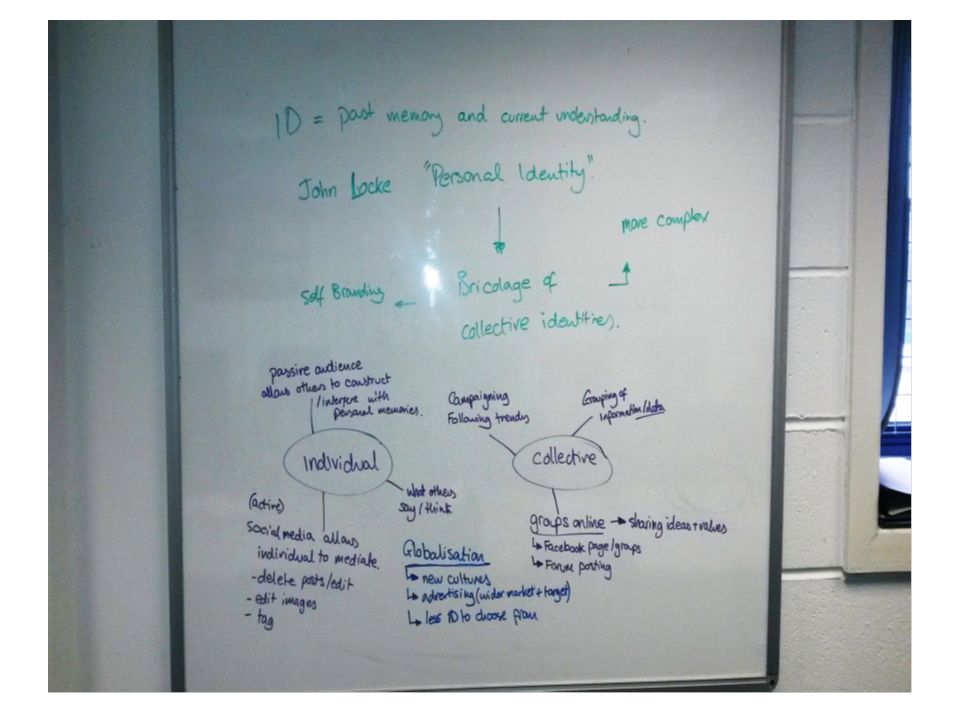 ID = past memory and current understanding.
John Locke "Personal Identity".
more complex
Self Branding ← Bricolage of
collective identities.
passive audience
allows others to construct
/interfere with
personal memories.
Campaigning
Following trends
Grouping of
information/data
individual
collective
what others
say/think
(active)
Social media allows
individual to mediate.
-delete posts/edit
- edit images
- tag
Globalisation
↳ new cultures
↳ advertising (wider market + target)
↳ less ID to choose from
groups online → sharing ideas + values
↳ Facebook page/groups
↳ Forum posting